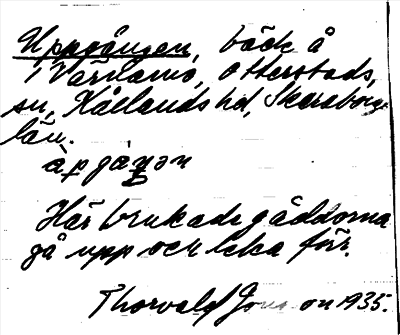 Uppgången, bäck å
i Värnamo, Otterstads
sn, Kållands hd, Skaraborgs
län.
àpgáŋən
Här brukade gäddorna
gå upp och leka förr.
Thorvald on 1935.